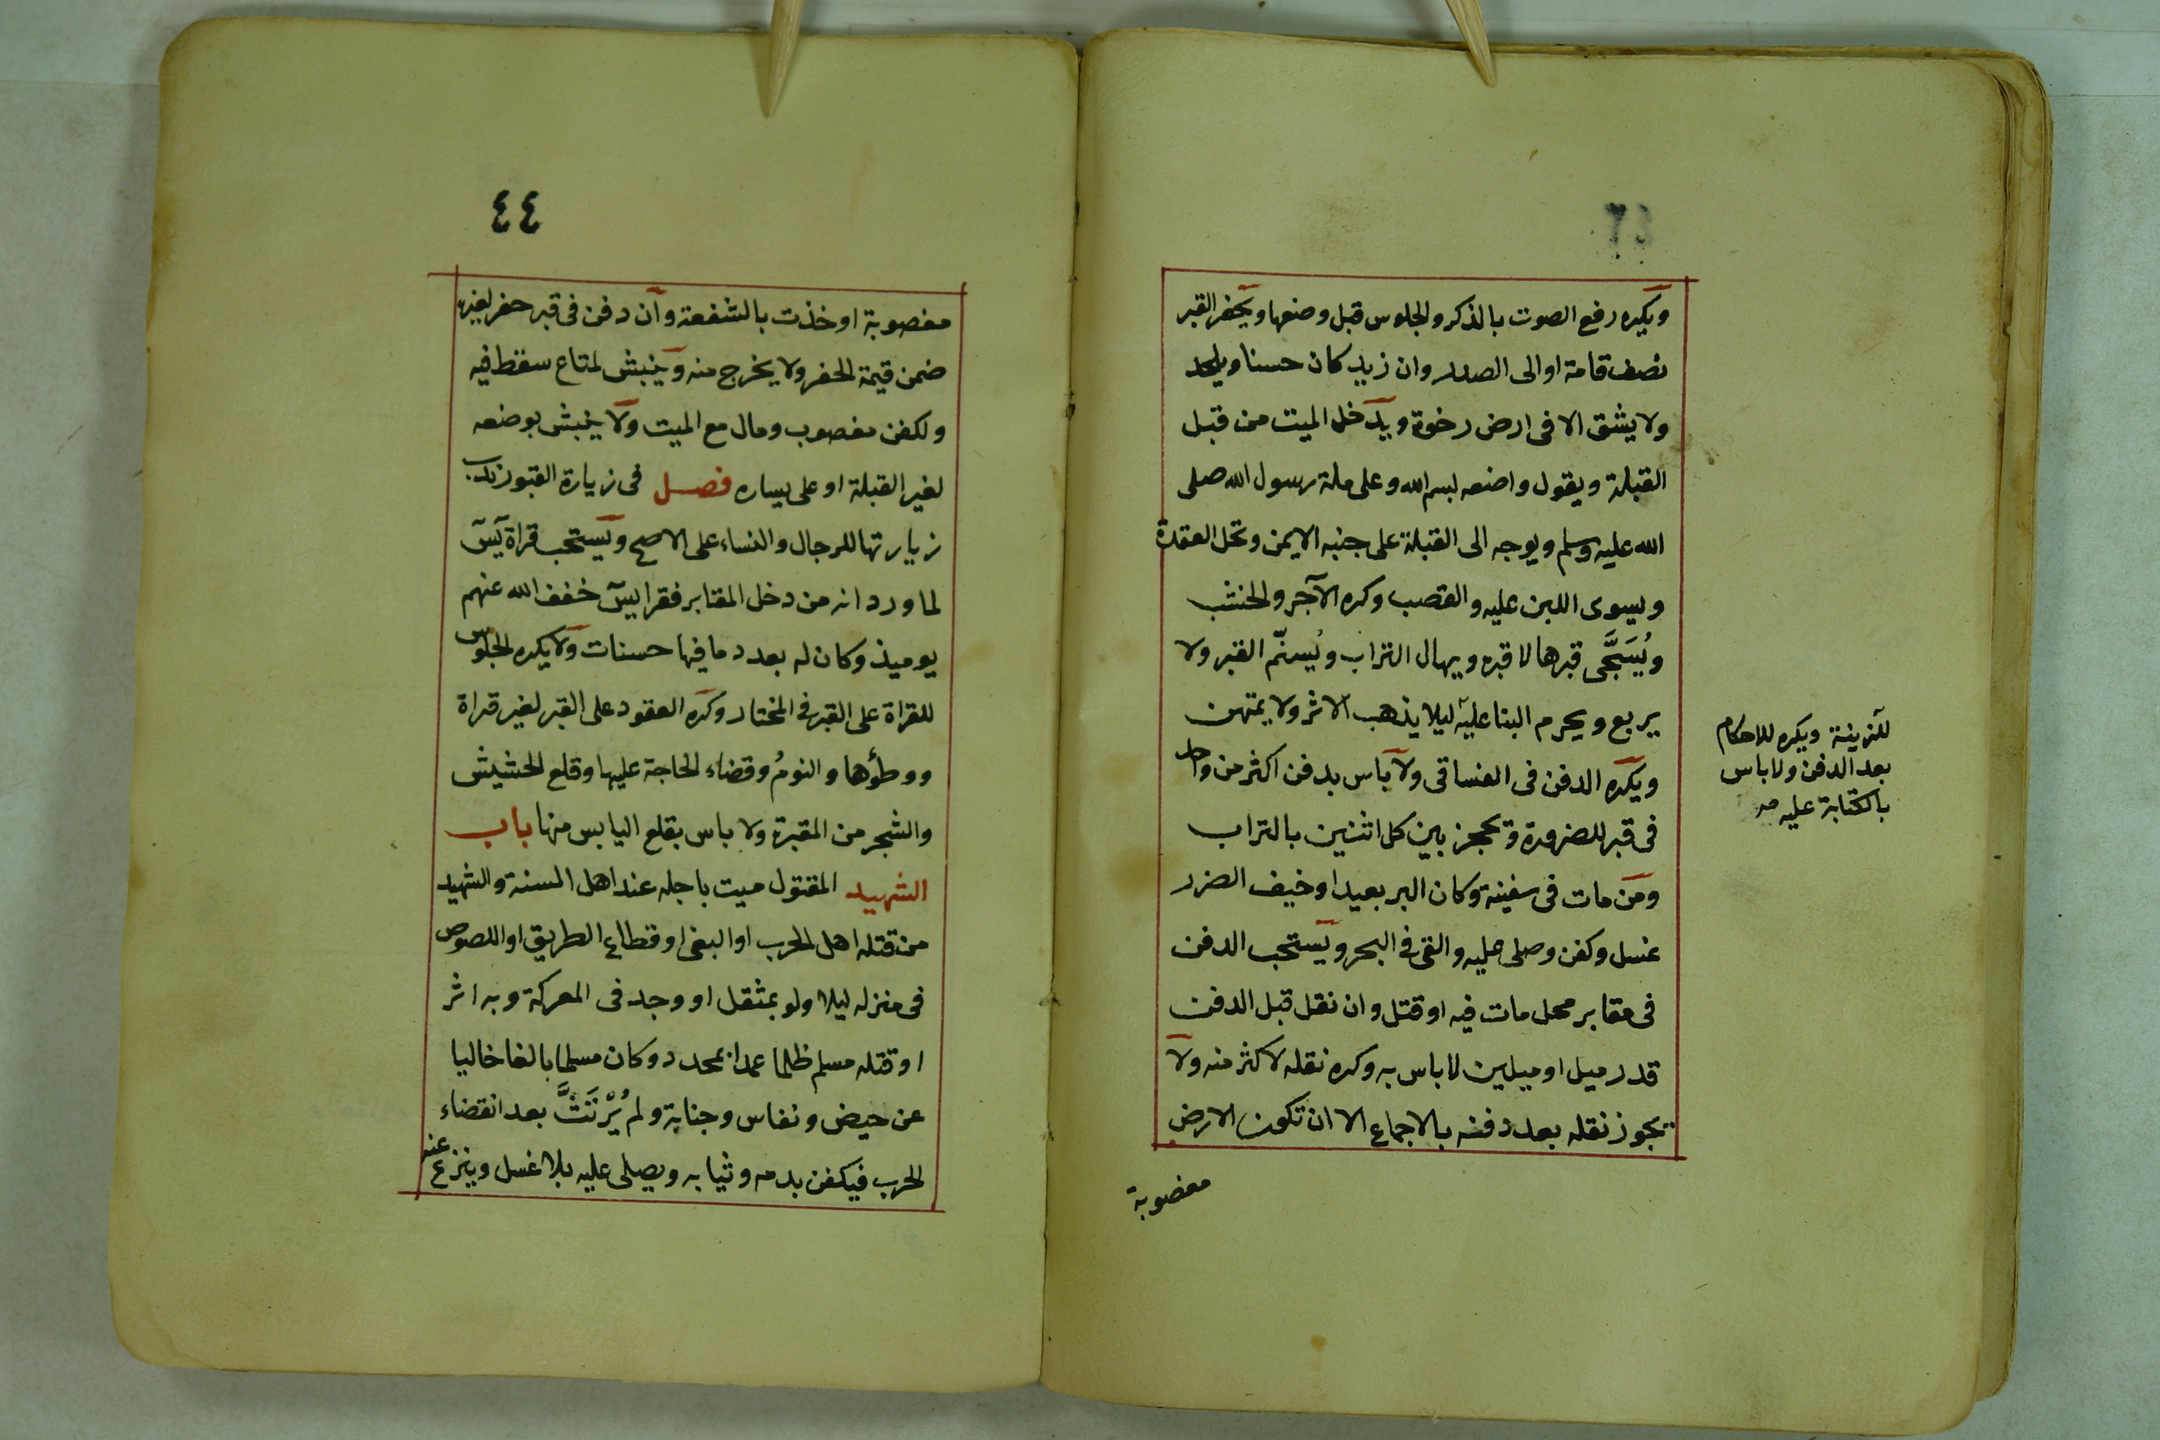 ويكره رفع الصوت بالذكر والجلوس قبل وضعها ويحفر القبر
نصف قامة او الى الصدر وان زيد كان حسنا ويلحد
ولا يشق الا فى ارض رخوة ويدخل الميت من قبل
القبلة ويقول واضعه بسم الله وعلى ملة رسول الله صلى
الله عليه وسلم ويوجه الى القبلة على جنبه الايمن وتحل العقدة
ويسوى اللبن عليه والقصب وكره الآجر والخشب
ويُسَجَّى قبرها لا قبره ويهال التراب ويُسنّم القبر ولا
يربع ويحرم البنا عليه ليلا يذهب الاثر ولا يمتهن
للزينة ويكره للاحكام
بعد الدفن ولا باس
بالكتابة عليه صه
ويكره الدفن فى الفساقى ولا باس بدفن اكثر من واحد
فى قبر للضرورة ويحجز بين كل اثنين بالتراب
ومن مات فى سفينة وكان البر بعيدا وخيف الضرر
غسل وكفن وصلى عليه والقى فى البحر ويستحب الدفن
فى مقابر محل مات فيه او قتل وان نقل قبل الدفن
قدر ميل او ميلين لا باس به وكره نقله لاكثر منه ولا
يجوز نقله بعد دفنه بالاجماع الا ان تكون الارض
مغصوبة
٤٤
مغصوبة او خذت بالشفعة وان دفن فى قبر حفر لغيره
ضمن قيمة الحفر ولا يخرج منه وينبش لمتاع سقط فيه
ولكفن مغصوب ومال مع الميت ولا ينبش بوضعه
لغير القبلة او على يساره فصل فى زيارة القبور ندب
زيارتها للرجال والنساء على الاصح ويستحب قراة يس
لما ورد انه من دخل المقابر فقرا يس خفف الله عنهم
يوميذ وكان له بعدد ما فيها حسنات ولا يكره الجلوس
للقراة على القبر فى المختار وكره العقود على القبر لغير قراة
ووطؤها والنومُ وقضاء الحاجة عليها وقلع الحشيش
والشجر من المقبرة ولا باس بقلع اليابس منها باب
الشهيد المقتول ميت باجله عند اهل السنة والشهيد
من قتله اهل الحرب او البغى او قطاع الطريق او اللصوص
فى منزله ليلا ولو بمثقل او وجد فى المعركة وبه اثر
او قتله مسلم ظلما عمدا بمحدد وكان مسلما بالغا خاليا
عن حيض ونفاس وجنابة ولم يُرْتَثَّ بعد انقضاء
الحرب فيكفن بدمه وثيابه ويصلى عليه بلا غسل وينزع عنه